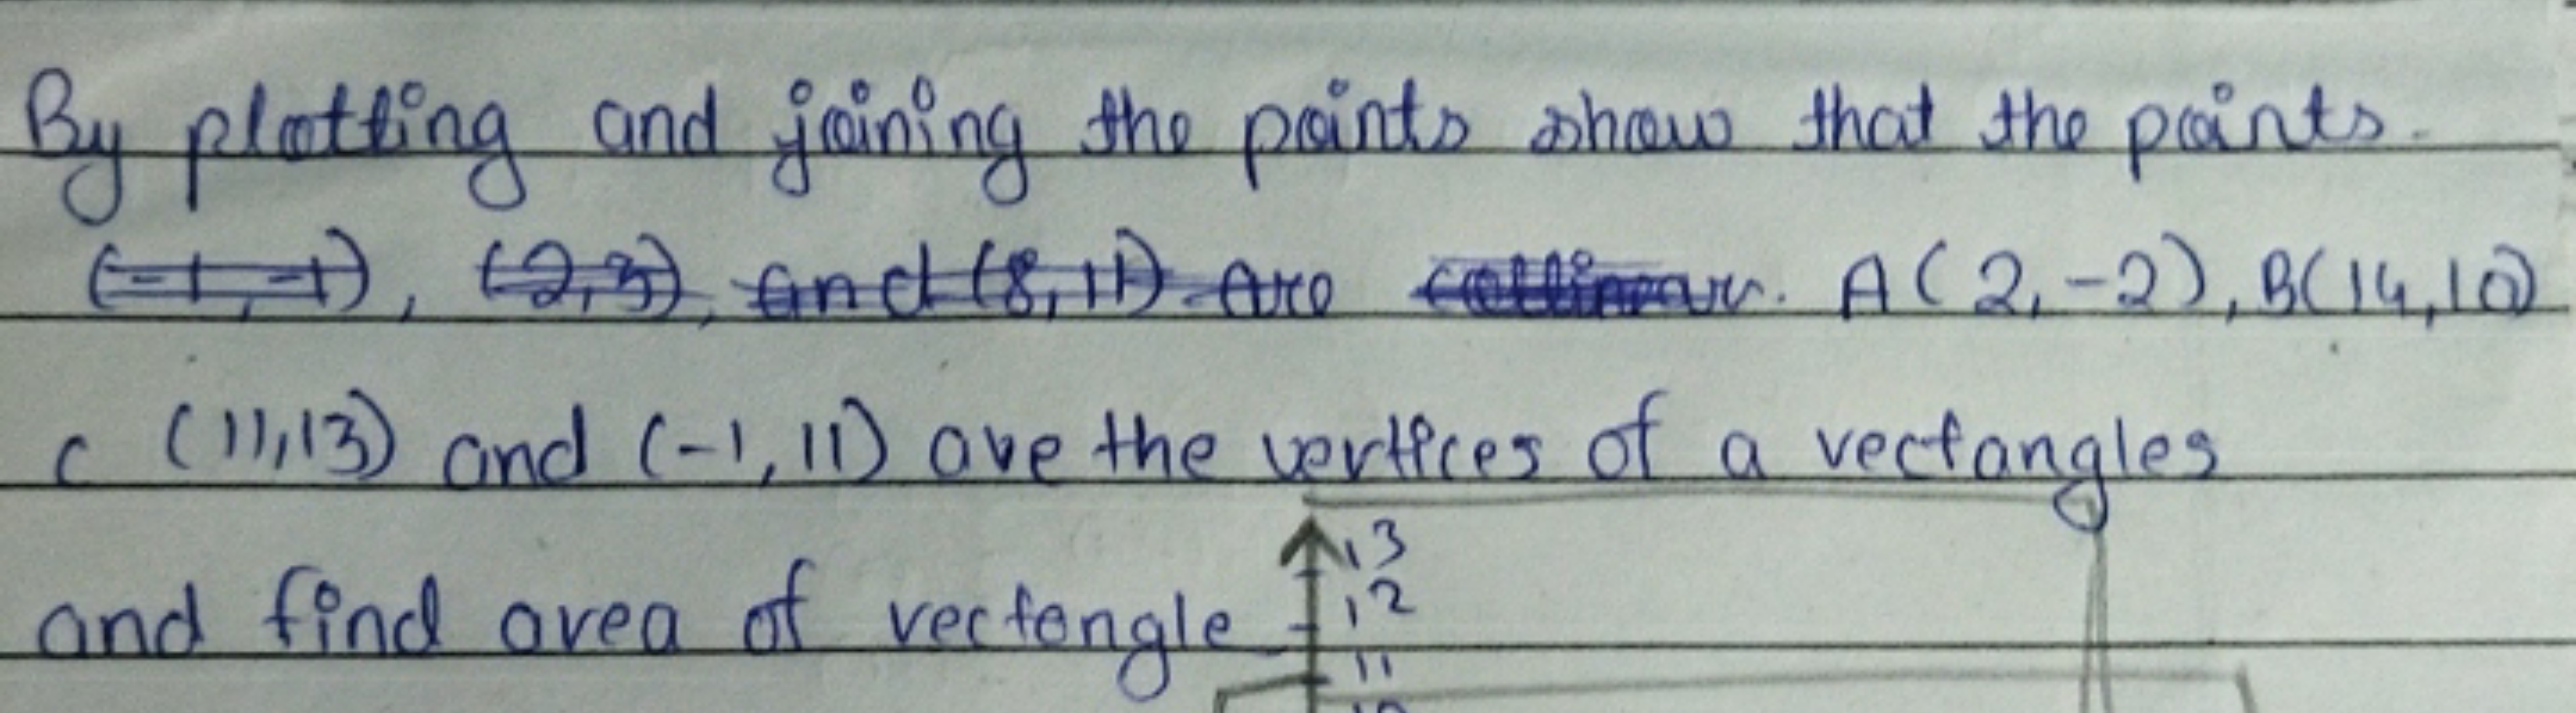 By plotting and joining the points show that the points.
(-1,-1), (2,3), and (8,11) are collinear. A(2,-2), B(14,10)
C (11,13) and (-1,11) are the vertices of a rectangles
and find area of rectangle
13
12
11
10